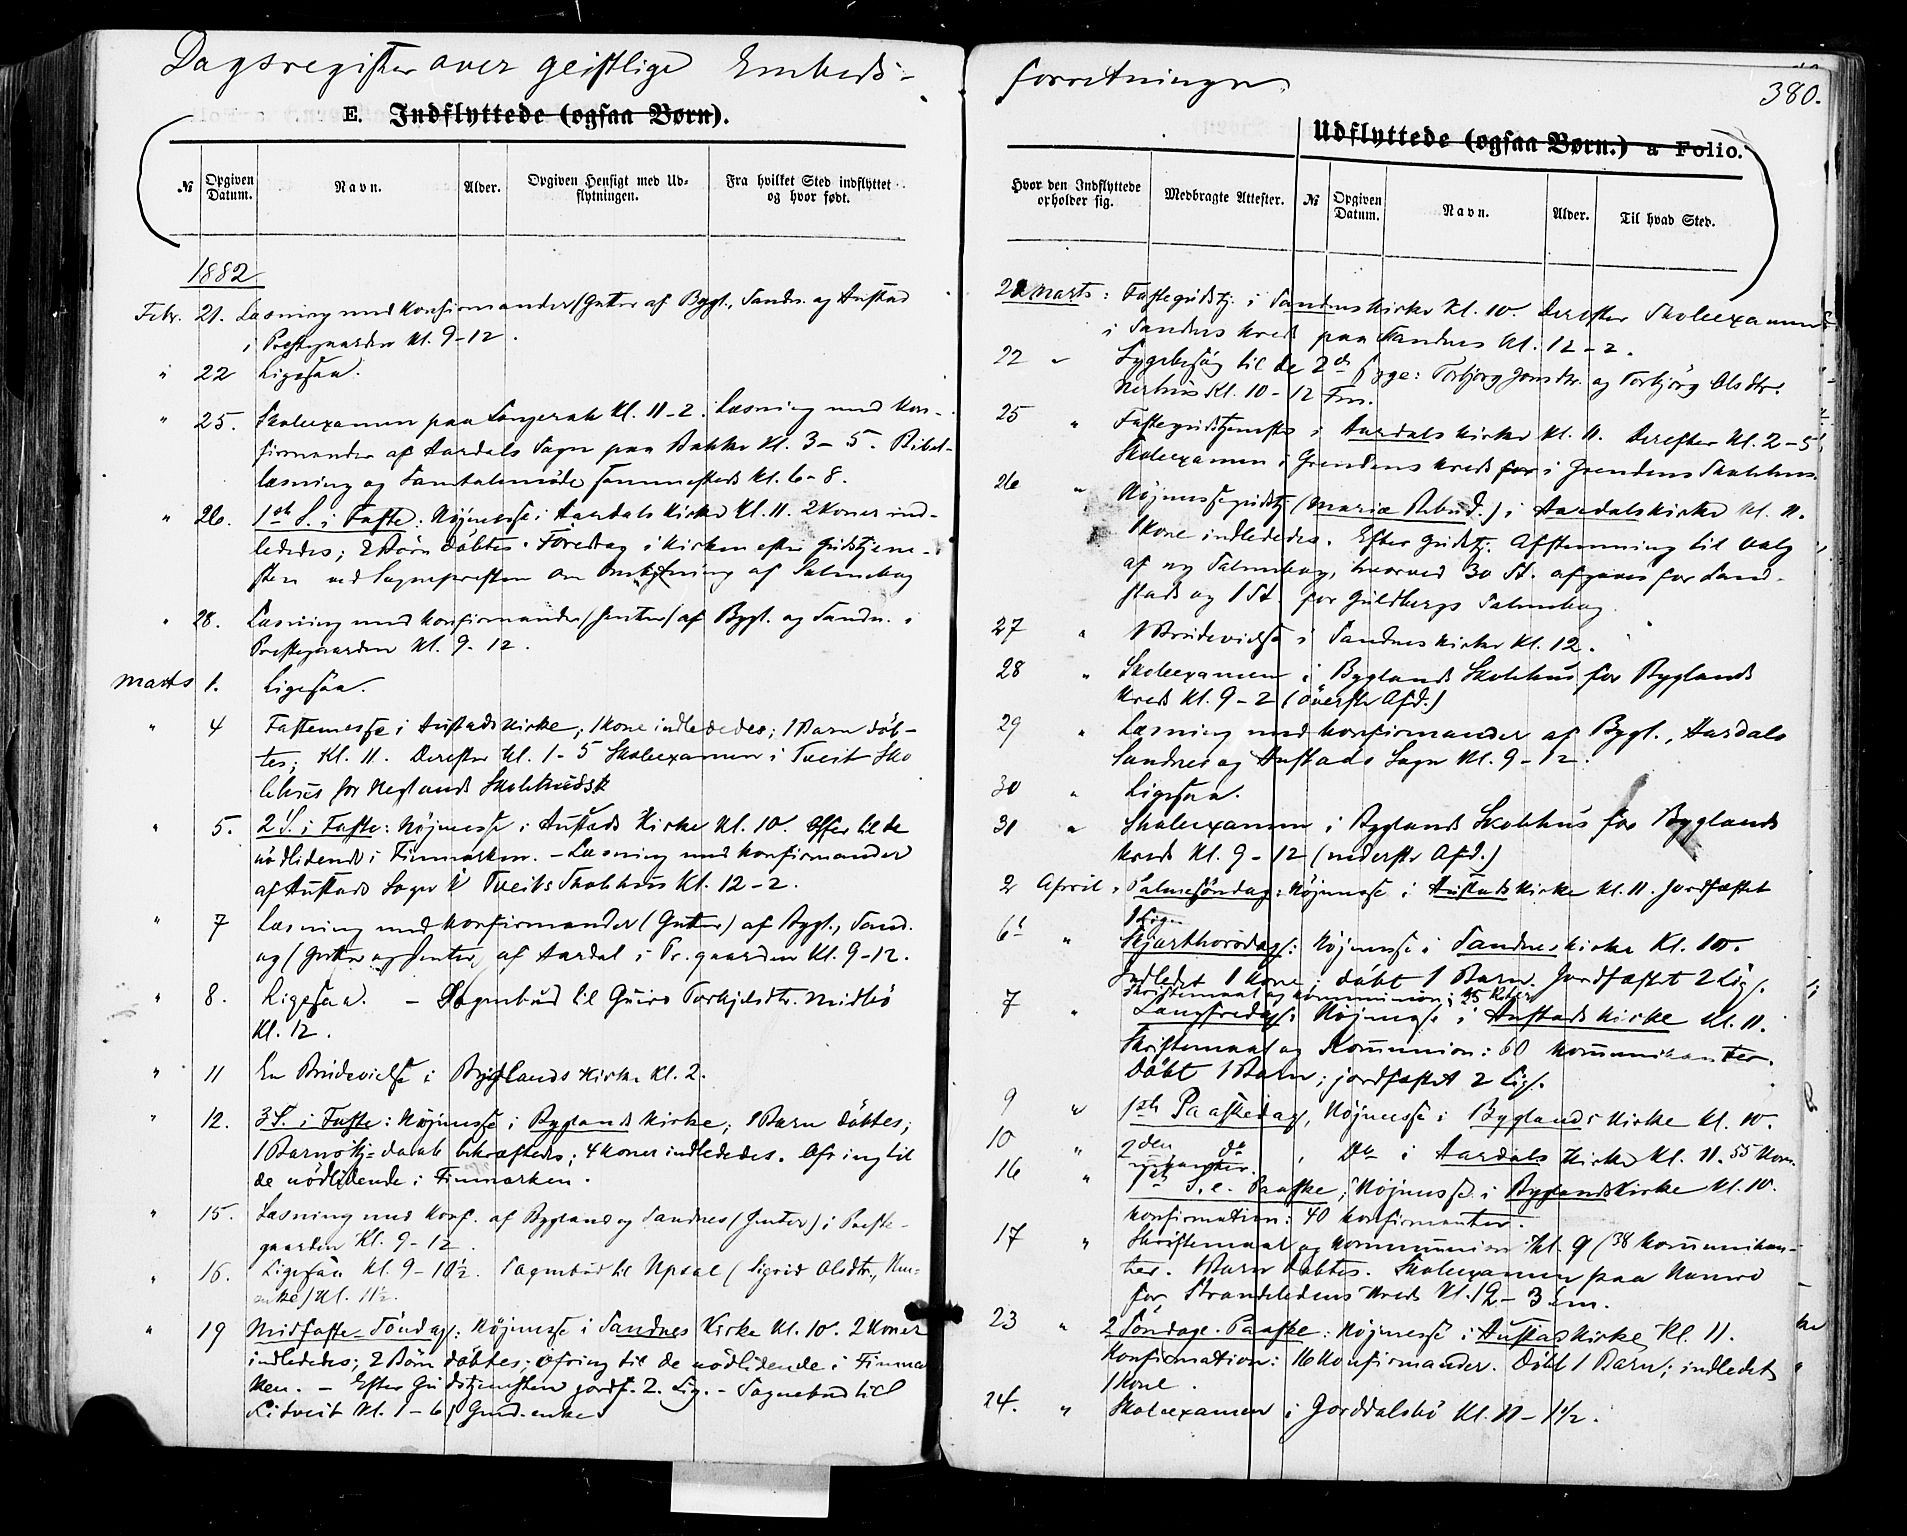 Dagsregister over geistlige Embeds-
E. Indflyttede (ogsaa Børn).
№ Opgiven Datum. Navn. Alder. Opgiven Hensigt med Udflytningen. Fra hvilket Sted indflyttet og hvor født.
1882
Febr. 21. Læsning med Konfirmander (Gutter af Bygl., Sandn. og Austad
i Præstegaarden Kl. 9-12.
" 22 Ligesaa.
" 25. Skoleexamen paa Langerak Kl. 11-2. Læsning med Kon-
firmander af Aardals Sogn paa Bakke Kl. 3-5. Bibel-
læsning og Samtalemøde sammesteds Kl. 6-8.
" 26. 1ste S. i Faste: Højmesse i Aardals Kirke Kl. 11. 2 Koner ind-
lededes; 2 Börn döbtes. Foredrag i Kirken efter Gudstjene-
sten ved Sognepresten om Ombytning af Salmebog
" 28. Læsning med Konfirmander (Jenter) af Bygl. og Sandn. i
Præstegaarden Kl. 9-12.
Marts 1. Ligesaa.
" 4 Fastemesse i Austads Kirke; 1 Kone indlededes; 1 Barn döb-
tes; Kl. 11. Derefter Kl. 1-5 Skoleexamen i Tveit Sko
lehus for Neglands Skolekreds
" 5. 2 S. i Faste: Højmesse i Austads Kirke Kl. 10. Offer til de
nödlidende i Finmarken. - Læsning med Konfirmander
af Austads Sogn i Tveits Skolehus Kl. 12-2.
" 7 Læsning med Konfirmander (Gutter) af Bygl., Sand.
og (Gutter og Jenter) af Aardal i Pr.gaarden Kl. 9-12.
" 8. Ligesaa. - Sognebud til Guro Torkjelsdtr. Midbö
Kl. 12.
" 11 En Brudevielse i Byglands Kirke Kl. 2.
" 12. 3 S. i Faste: Højmesse i Byglands Kirke; 1 Barn döbtes;
1 Barns Hj=daab bekræftedes; 4 Koner indlededes. Ofring til
de nödlidende i Finmarken.
" 15. Læsning med Konf. af Bygland og Sandnes (Jenter) i Præste-
gaarden Kl. 9-12.
" 16. Ligesaa Kl. 9-10½. Sognebud til Upsal (Sigrid Olsdtr.,
enke) Kl. 11½.
" 19 Midfaste-Söndag: Højmesse i Sandnes Kirke Kl. 10. 2 Koner
indlededes; 2 Börn döbtes; Ofring til de nödlidende i Finmar
ken. - Efter Gudstjenesten jordf. 2 Lig. - Sognebud til
Litveit Kl. 1-6
forretninger.
380.
Udflyttede (ogsaa Børn.) a Folio.
Hvor den Indflyttede opholder sig. Medbragte Attester. № Opgiven Datum. Navn. Alder. Til hvad Sted.
21 Marts: Fastegudstj. i Sandnes Kirke Kl. 10. Derefter Skoleexamen
i Sandnes Kreds paa Sandnes Kl. 12-2.
22 " Sygebesög til de 2de syge: Torbjörg Jonsdtr. og Torbjörg Olsdtr.
Nerhus Kl. 10-12 Fm.
25 " Fastegudstjeneste i Aardals Kirke Kl. 11. Derefter Kl. 2-5
Skoleexamen i Grendens Kreds i Grendens Skolehus.
26 " Højmessegudstj (Mariæ Bebud.) i Aardals Kirke Kl. 11.
1 Kone indlededes. Efter Gudstj. Afstemning til Valg
af ny Salmebog, hvorved 30 St. afgaves for Land-
stads og 1 St. for Guldbergs Salmebog.
27 " 1 Brudevielse i Sandnes Kirke Kl. 12.
28 " Skoleexamen i Byglands Skolehus for Byglands
Kreds Kl. 9-2 (överste Afd.)
29 " Læsning med Konfirmander af Bygl., Aardals
Sandnes og Austads Sogn Kl. 9-12.
30 " Ligesaa.
31 " Skoleexamen i Byglands Skolehus for Byglands
Kreds Kl. 9-12 (nederste Afd.)
2 April: Palmesöndag: Højmesse i Austads Kirke Kl. 11. Jordfæstet
1 Lig.
6 " Skjærthorsdag: Højmesse i Sandnes Kirke Kl. 10.
Indledet 1 Kone; döbt 1 Barn. Jordfæstet 2 Lig.
Skriftemaal og Kommunion: 25
7 " Langfredag: Højmesse i Austads Kirke Kl. 11.
Skriftemaal og Kommunion: 60 Kommunikanter.
Döbt 1 Barn; jordfæstet 2 Lig.
9 " 1ste Paaskedag, Højmesse i Byglands Kirke Kl. 10.
10 " 2den do , Do i Aardals Kirke Kl. 11. 55 Kom-
munikanter.
16 " 1ste S. e. Paaske; Højmesse i Byglands Kirke Kl. 10.
Konfirmation: 40 Konfirmanter.
17 " Skriftemaal og Kommunion Kl. 9 (38 Kommunikan-
ter. 1 Barn döbtes. Skoleexamen paa
for Strandeledens Kreds Kl. 12-3 Em.
23 " 2 Söndag e. Paaske: Højmesse i Austads Kirke Kl. 11.
Konfirmation: 16 Konfirmander. Döbt 1 Barn; indledet
1 Kone.
24. " Skoleexamen i Jorddalsbö Kl. 11-1½.